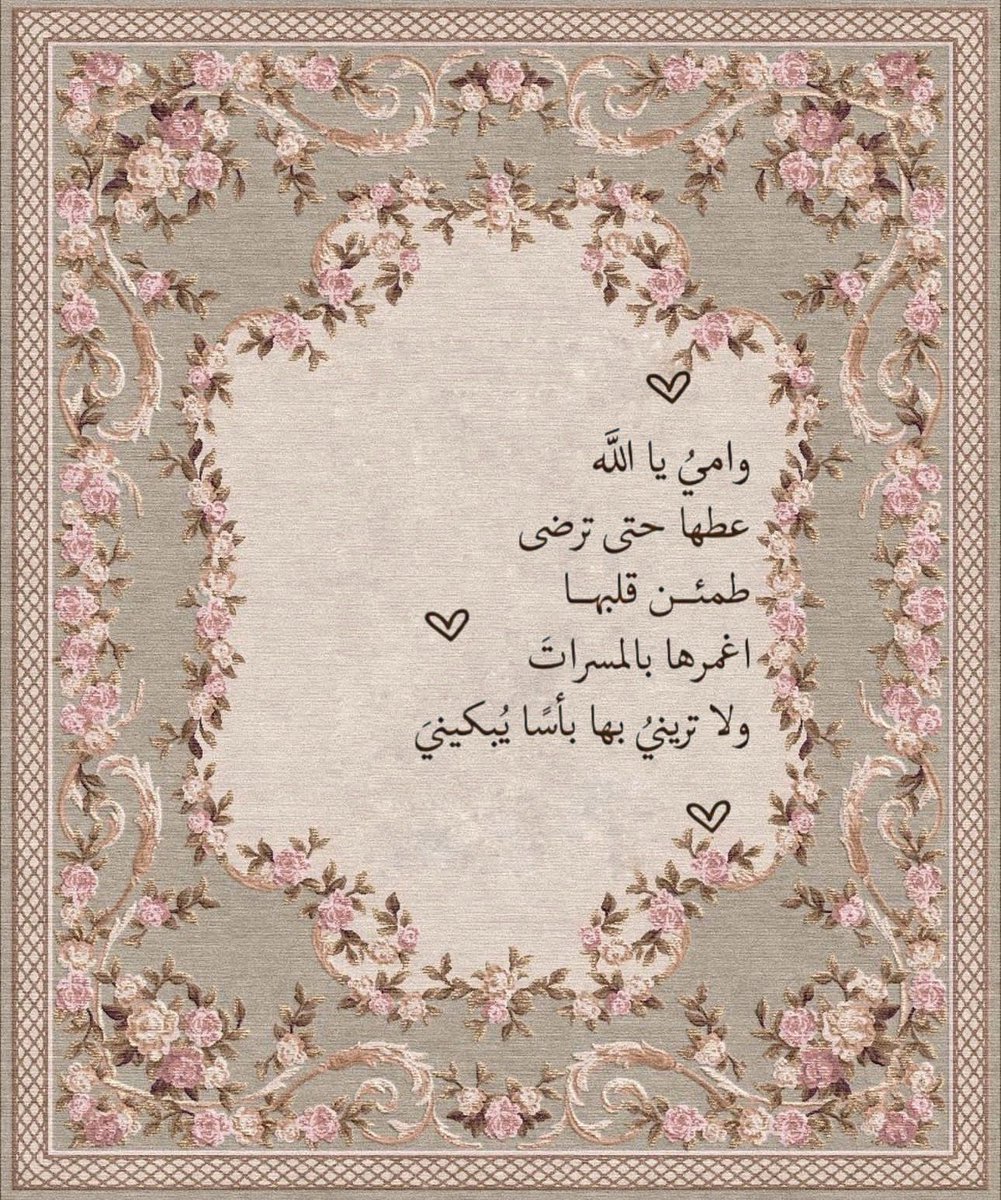 واميُ يا اللَّه
عطها حتى ترضى
طمئـــن قلبهـــا
اغمرها بالمسراتَ
ولا ترينيُ بها بأسًا يُبكينيَ